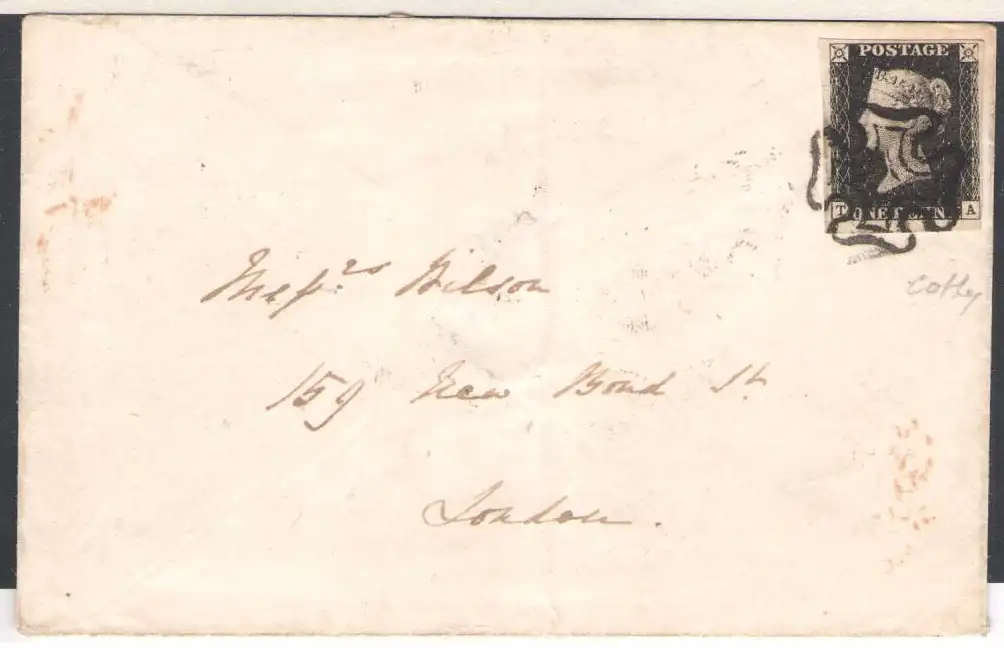 POSTAGE
T ONE PENNY A
Messrs Wilson
159 New Bond St
London.